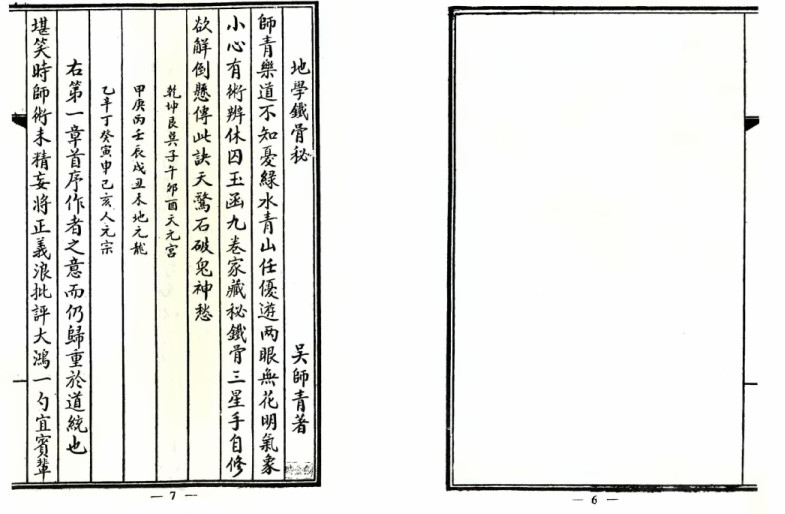 地學鐵骨秘
吳師青著
師青樂道不知憂綠水青山任優遊两眼無花明氣象
小心有術辨休囚玉函九卷家藏秘鐵骨三星手自修
欲解倒懸傳此訣天驚石破鬼神愁
乾坤艮巽子午卯酉天元宮
甲庚丙壬辰戌丑未地元龍
乙辛丁癸寅申巳亥人元宗
右第一章首序作者之意而仍歸重於道統也
堪笑時師術未精妄將正義浪批評大鴻一勺宜賓輩
— 7 —
— 6 —